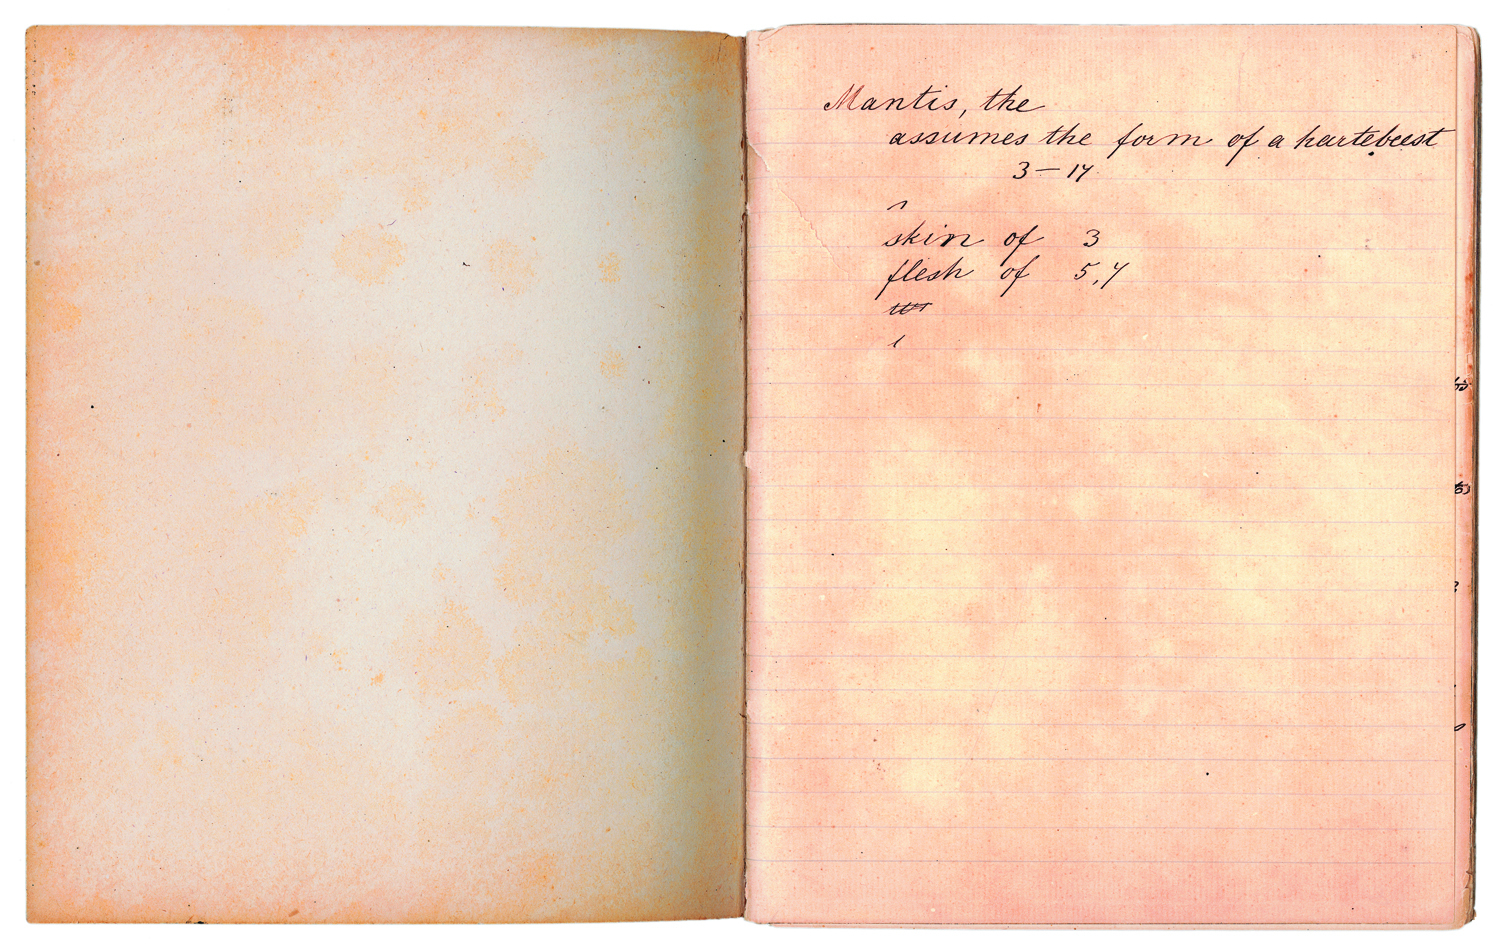 Mantis, the
assumes the form of a hartebeest
3 — 17
skin of 3
flesh of 5, 7